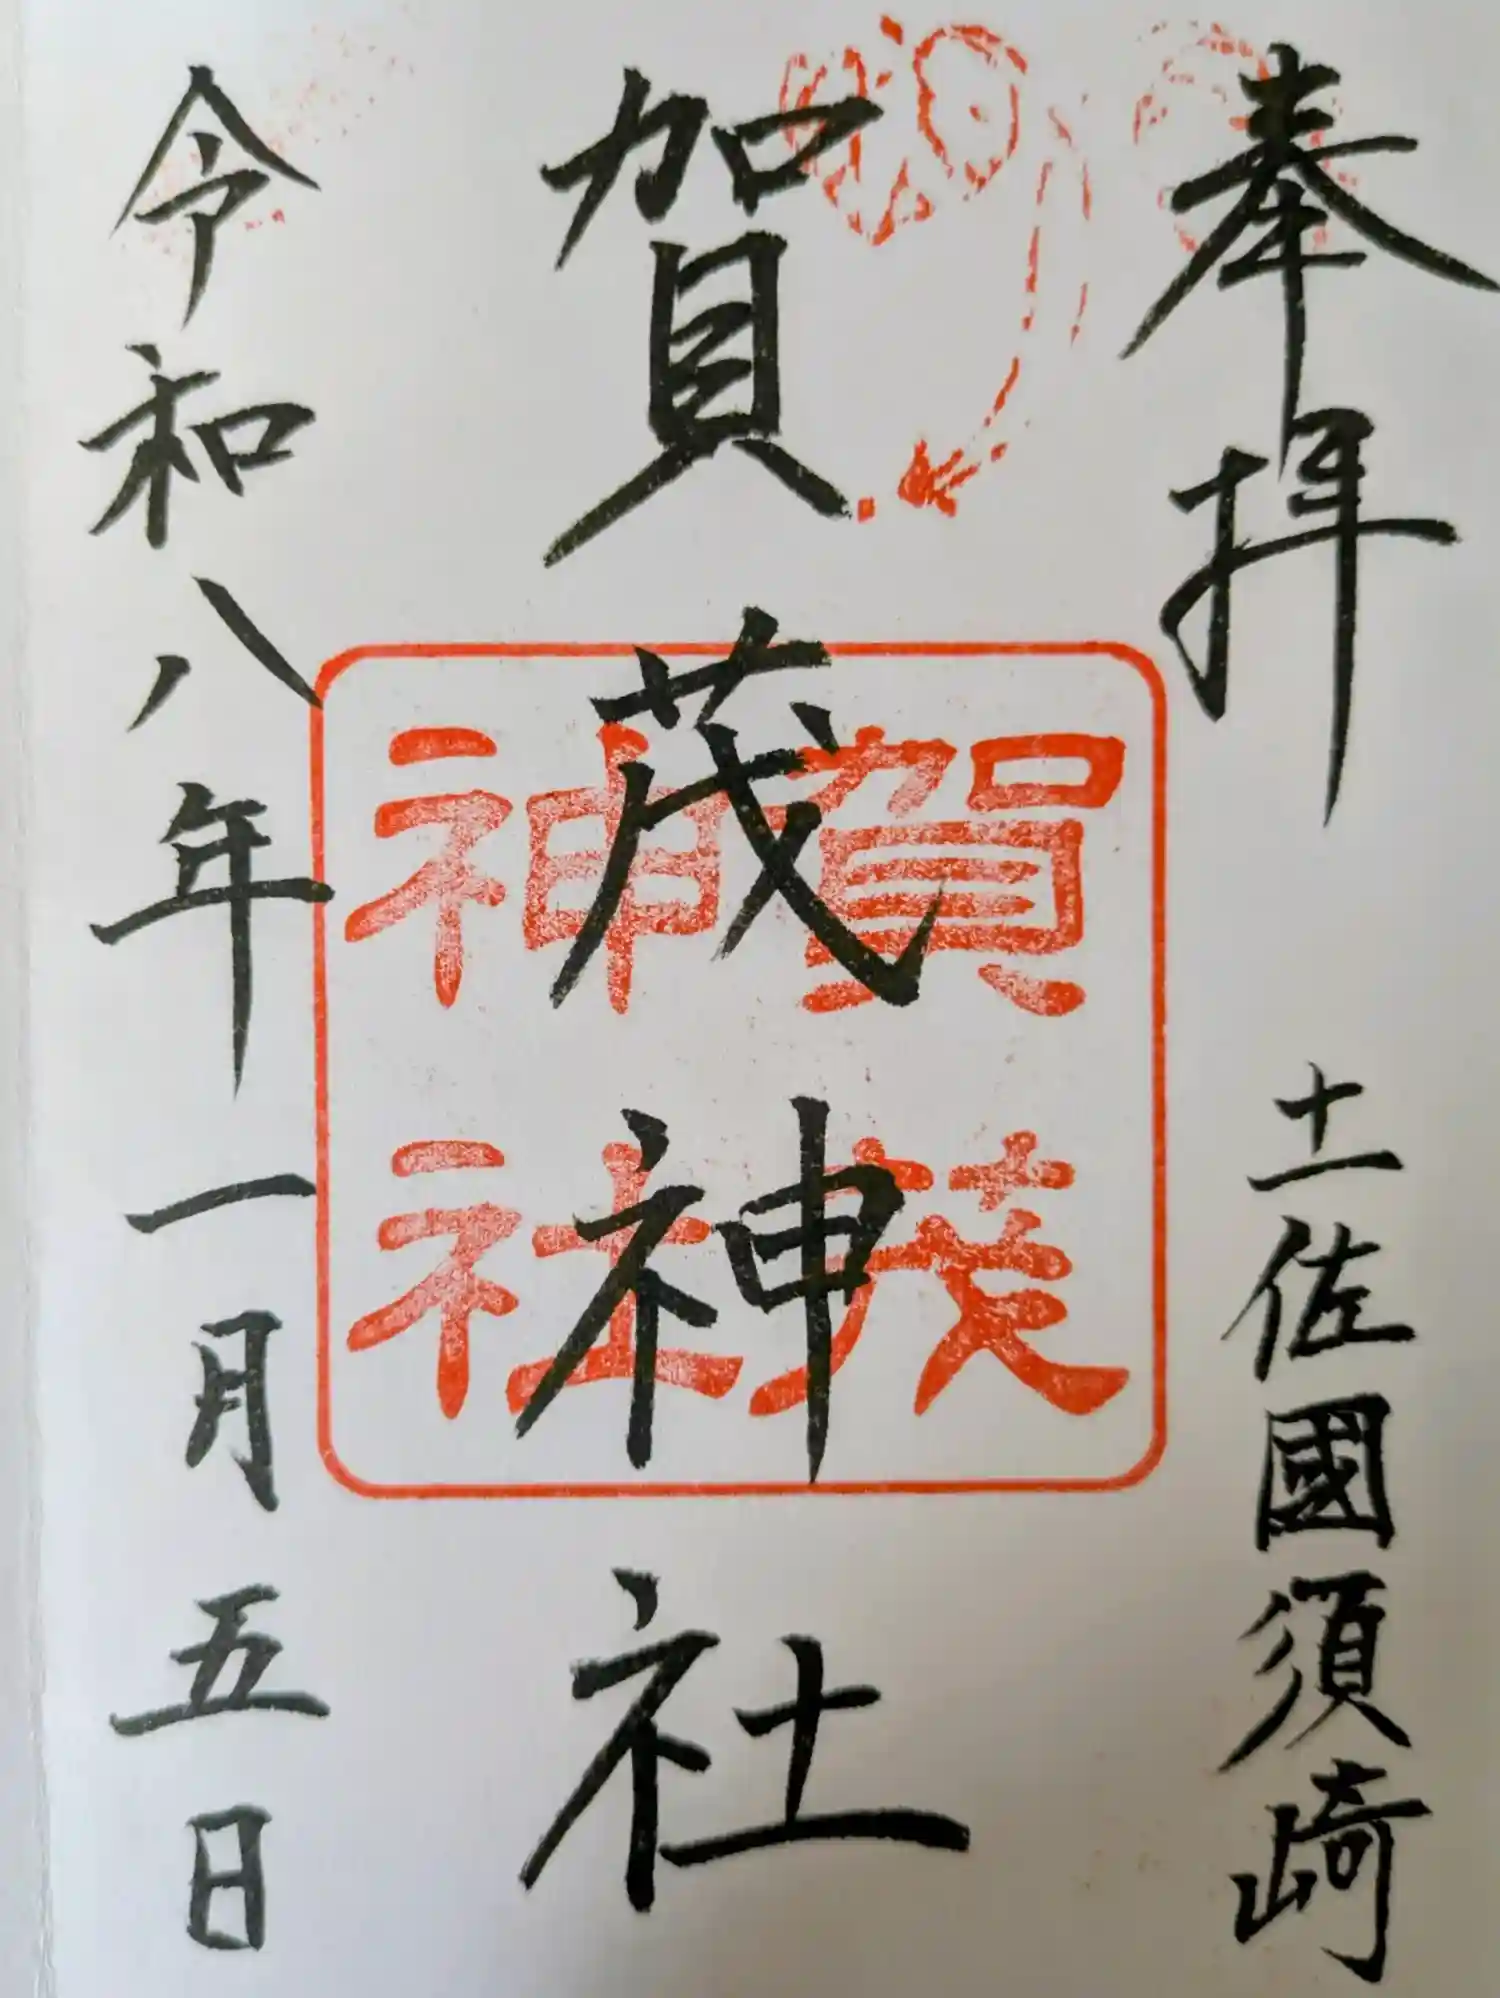 奉拝
土佐國須崎
賀茂神社
賀茂
神社
令和八年一月五日